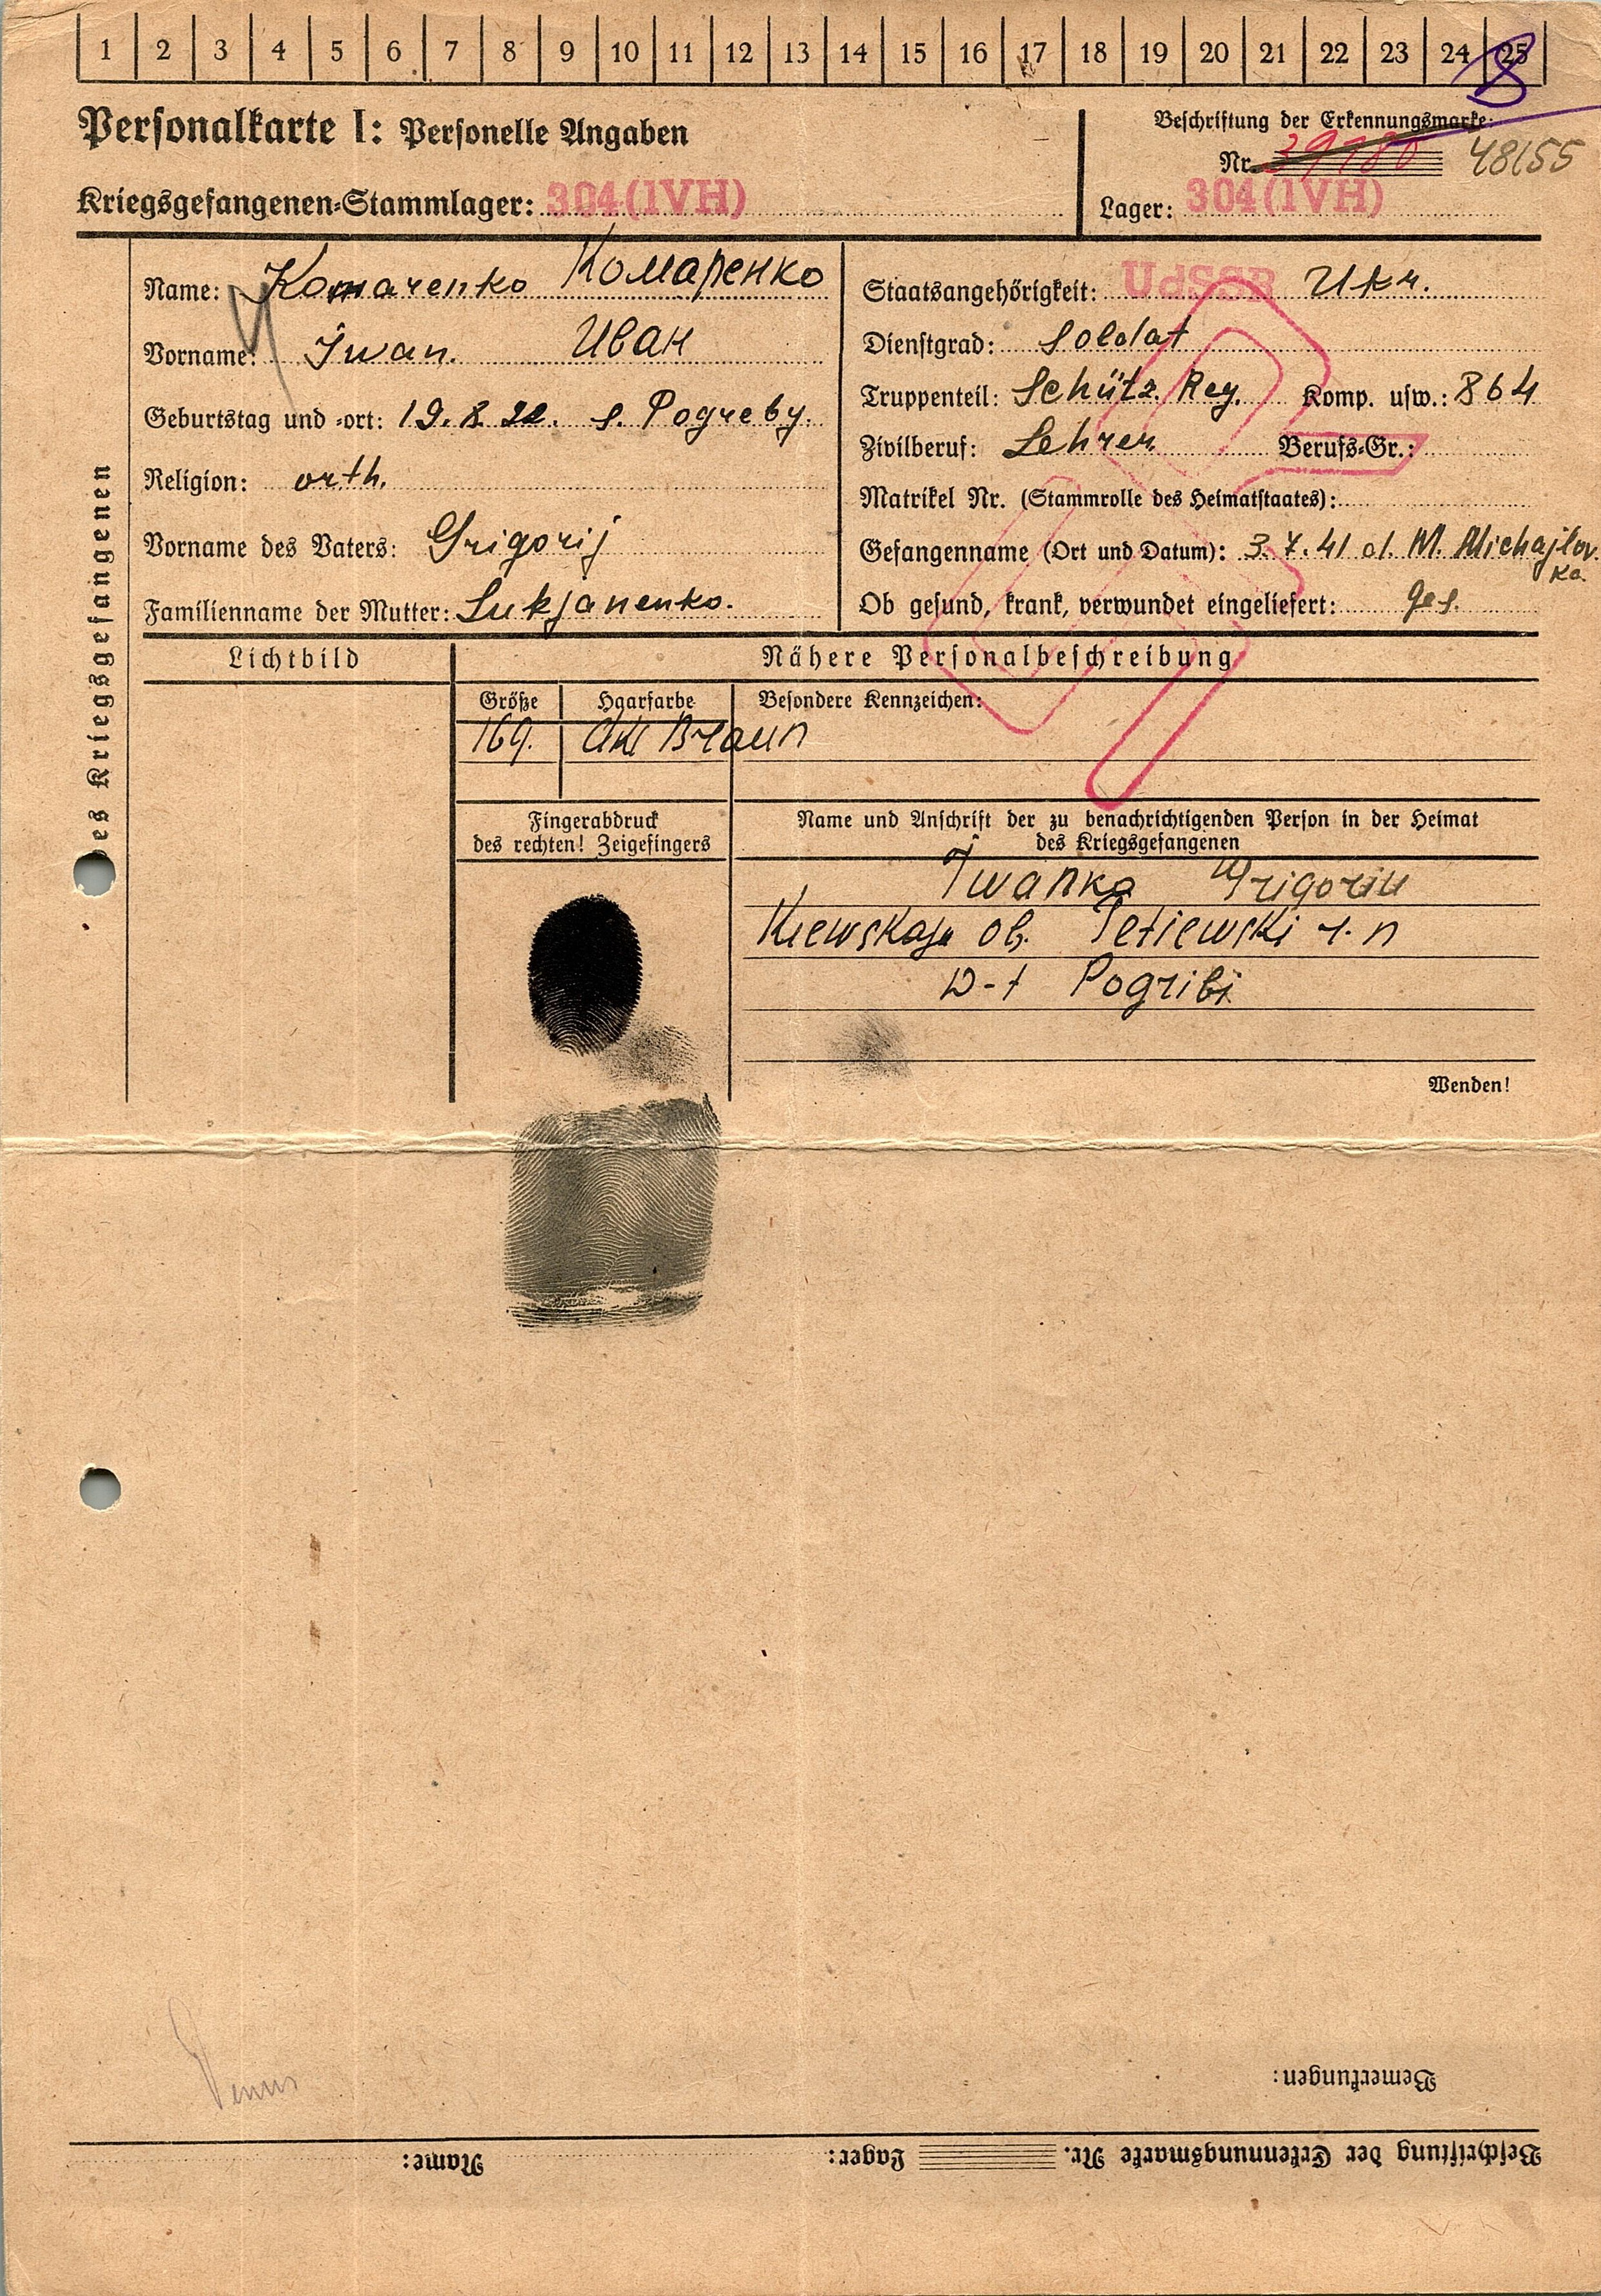 1 2 3 4 5 6 7 8 9 10 11 12 13 14 15 16 17 18 19 20 21 22 23 24 25
8
Personalkarte I: Personelle Angaben
Beschriftung der Erkennungsmarke:
Nr. 48155
Kriegsgefangenen-Stammlager: 304(IVH)
Lager: 304(IVH)
des Kriegsgefangenen
Name: Komarenko Комаренко
Vorname: Iwan. Иван
Geburtstag und -ort: 19.8.22. s. Pogreby.
Religion: orth.
Vorname des Vaters: Grigorij
Familienname der Mutter: Lukjanenko.
Staatsangehörigkeit: UdSSR Ukr.
Dienstgrad: Soldat
Truppenteil: Schütz. Reg. Komp. usw.: 864
Zivilberuf: Lehrer Berufs-Gr.:
Matrikel Nr. (Stammrolle des Heimatstaates):
Gefangenname (Ort und Datum): 3.7.41 M. Michajlov.
ka.
Ob gesund, krank, verwundet eingeliefert: ges.
Lichtbild
Nähere Personalbeschreibung
Größe Haarfarbe Besondere Kennzeichen:
169. Braun
Fingerabdruck
des rechten! Zeigefingers
Name und Anschrift der zu benachrichtigenden Person in der Heimat
des Kriegsgefangenen
Iwanko Grigoriu
Kiewskaja ob. Tetiewski r. n
Pogribi
Wenden!
Bemerkungen:
Beschriftung der Erkennungsmarke Nr. Lager: Name: